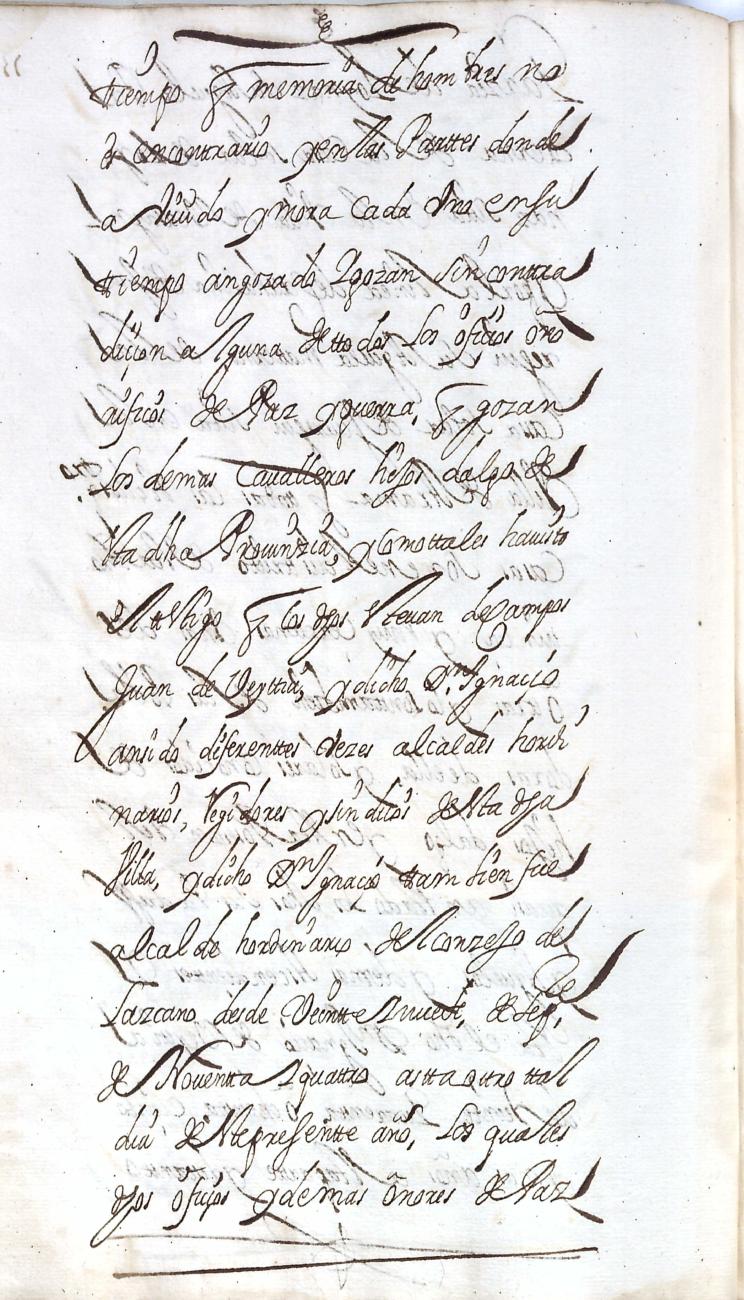 tiempo q memoria de hombres no
es encontrario. y en las Parttes donde
a viuido y mora cada Vno en su
tiempo an gozado y gozan sin contra
diçion alguna de ttodos los ofiçios ono
rificos de Paz y guerra, q gozan
los demas Caualleros hijosdalgo de
esta dha Prouinzia, y como ttales ha uisto
el testigo q los dhos Esteuan de Campos
Juan de Veyttia, y dicho Dn Ignaçio
an sido diferenttes vezes alcaldes hordi
narios, Regidores y sindicos de esta dha
Villa, y dicho Dn Ignaçio ttambien fue
alcalde hordinario del Conzejo de
Lazcano desde Veintte y nueue, de sep,e
de Nouentta y quattro astta otro ttal
dia de este presentte año, los quales
dhos ofiçios y demas onores de Paz